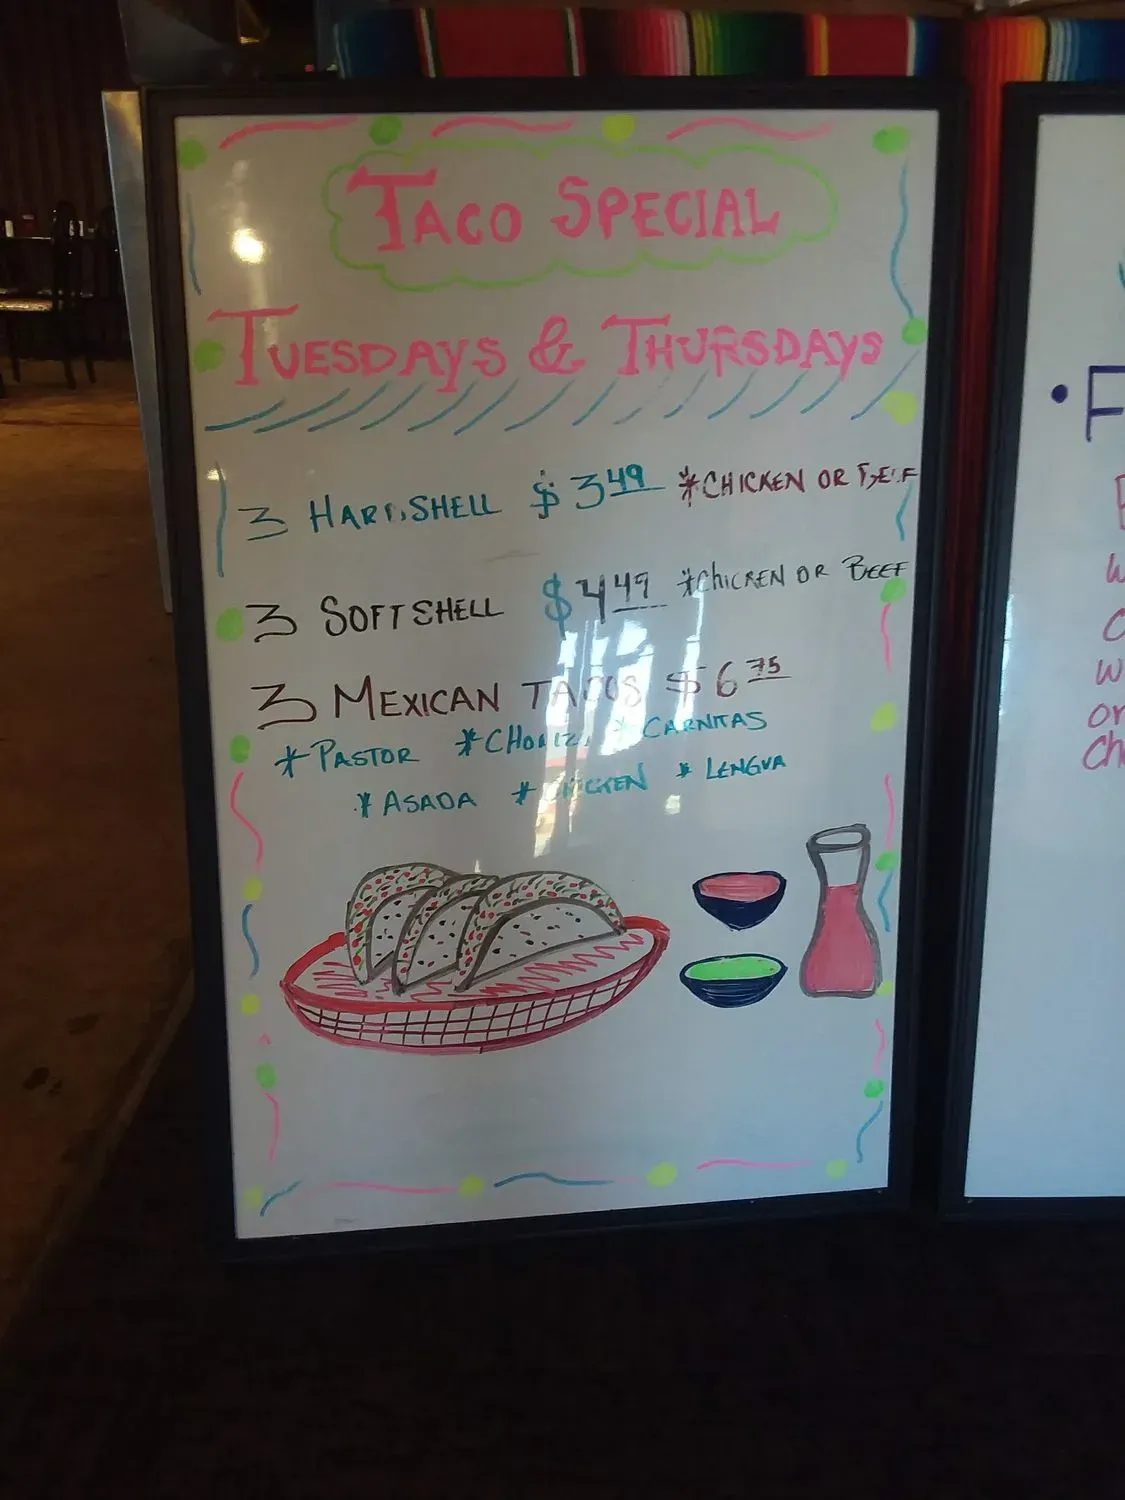 TACO SPECIAL
TUESDAYS & THURSDAYS
3 HARD SHELL $3.49 *CHICKEN OR BEEF
3 SOFT SHELL $4.49 *CHICKEN OR BEEF
3 MEXICAN TACOS $6.75
*PASTOR *CHORIZO *CARNITAS
*ASADA *CHICKEN *LENGUA